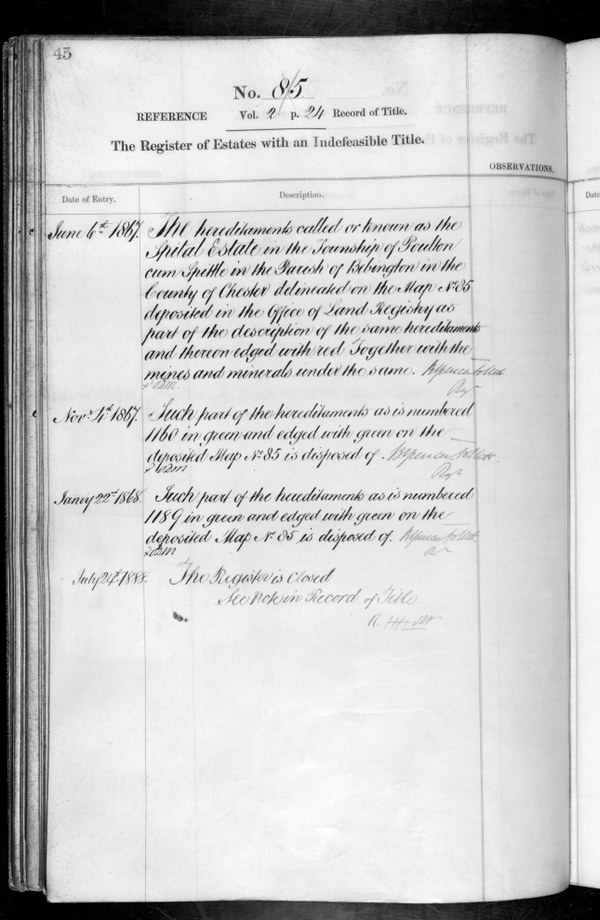 45
No. 85
REFERENCE Vol. 2 p. 24 Record of Title.
The Register of Estates with an Indefeasible Title.
OBSERVATIONS.
Date of Entry. Description.
June 6th 1867. The hereditaments called or known as the
Spital Estate in the Township of Poulton
cum Spittle in the Parish of Bebington in the
County of Chester delineated on the Map No. 85
deposited in the Office of Land Registry as
part of the description of the same hereditaments
and thereon edged with red Together with the
mines and minerals under the same.
Novr. 4th 1867. Such part of the hereditaments as is numbered
1160 in green and edged with green on the
deposited Map No. 85 is disposed of.
Jany 22nd 1868. Such part of the hereditaments as is numbered
1189 in green and edged with green on the
deposited Map No. 85, is disposed of.
July 24th 1888. The Register is Closed
See Note in Record of Title
Date